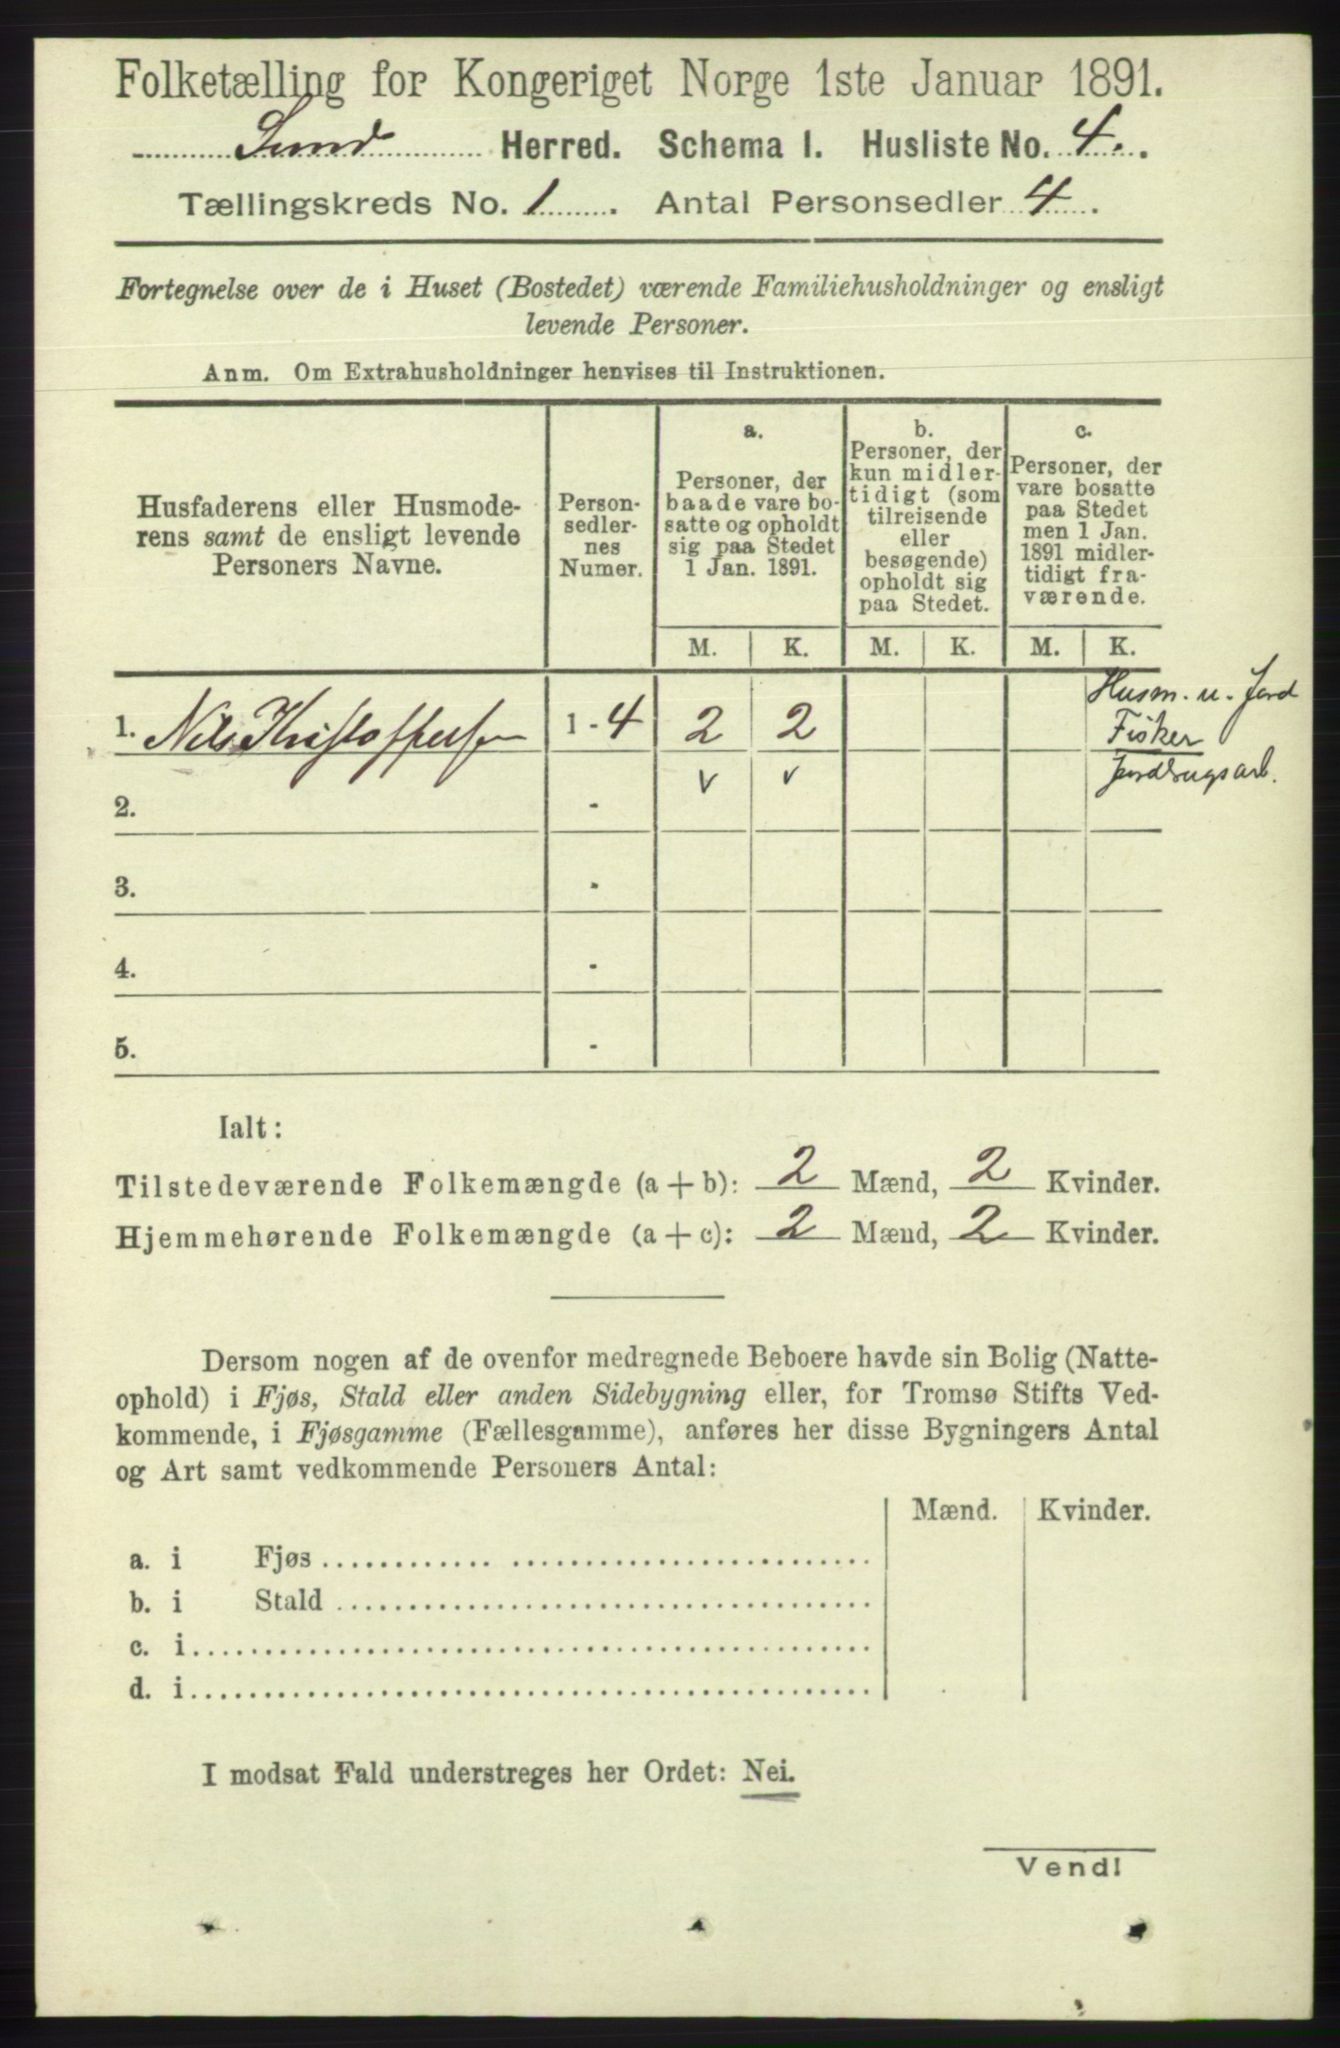 Folketælling for Kongeriget Norge 1ste Januar 1891.
Sund Herred. Schema I. Husliste No. 4.
Tællingskreds No. 1. Antal Personsedler 4.
Fortegnelse over de i Huset (Bostedet) værende Familiehusholdninger og ensligt
levende Personer.
Anm. Om Extrahusholdninger henvises til Instruktionen.
Husfaderens eller Husmode-
rens samt de ensligt levende
Personers Navne.
Person-
sedler-
nes
Numer.
a.
Personer, der
baade vare bo-
satte og opholdt
sig paa Stedet
1 Jan. 1891.
b.
Personer, der
kun midler-
tidigt (som
tilreisende
eller
besøgende)
opholdt sig
paa Stedet.
c.
Personer, der
vare bosatte
paa Stedet
men 1 Jan.
1891 midler-
tidigt fra-
værende.
M. K. M. K. M. K.
Husm. u. Jord
1. Nils Kristoffersen 1 - 4 2 2 Fisker
v v Jordbrugsarb.
2. -
3. -
4. -
5. -
Ialt:
Tilstedeværende Folkemængde (a + b): 2 Mænd, 2 Kvinder.
Hjemmehørende Folkemængde (a + c): 2 Mænd, 2 Kvinder.
Dersom nogen af de ovenfor medregnede Beboere havde sin Bolig (Natte-
ophold) i Fjøs, Stald eller anden Sidebygning eller, for Tromsø Stifts Ved-
kommende, i Fjøsgamme (Fællesgamme), anføres her disse Bygningers Antal
og Art samt vedkommende Personers Antal:
Mænd. Kvinder.
a. i Fjøs
b. i Stald
c. i
d. i
I modsat Fald understreges her Ordet: Nei.
Vend!